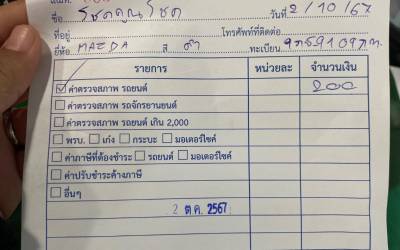 ชื่อ โชคคูณโชค วันที่ 2/10/67
ที่อยู่ โทรศัพท์ที่ติดต่อ
ยี่ห้อ MAZDA สี ดำ ทะเบียน
รายการ หน่วยละ จำนวนเงิน
ค่าตรวจสภาพ รถยนต์ 200
ค่าตรวจสภาพ รถจักรยานยนต์
ค่าตรวจสภาพ รถยนต์ เกิน 2,000
พรบ. เก๋ง กระบะ มอเตอร์ไซค์
ค่าภาษีที่ต้องชำระ รถยนต์ มอเตอร์ไซค์
ค่าปรับชำระค้างภาษี
อื่นๆ
2 ต.ค. 2567